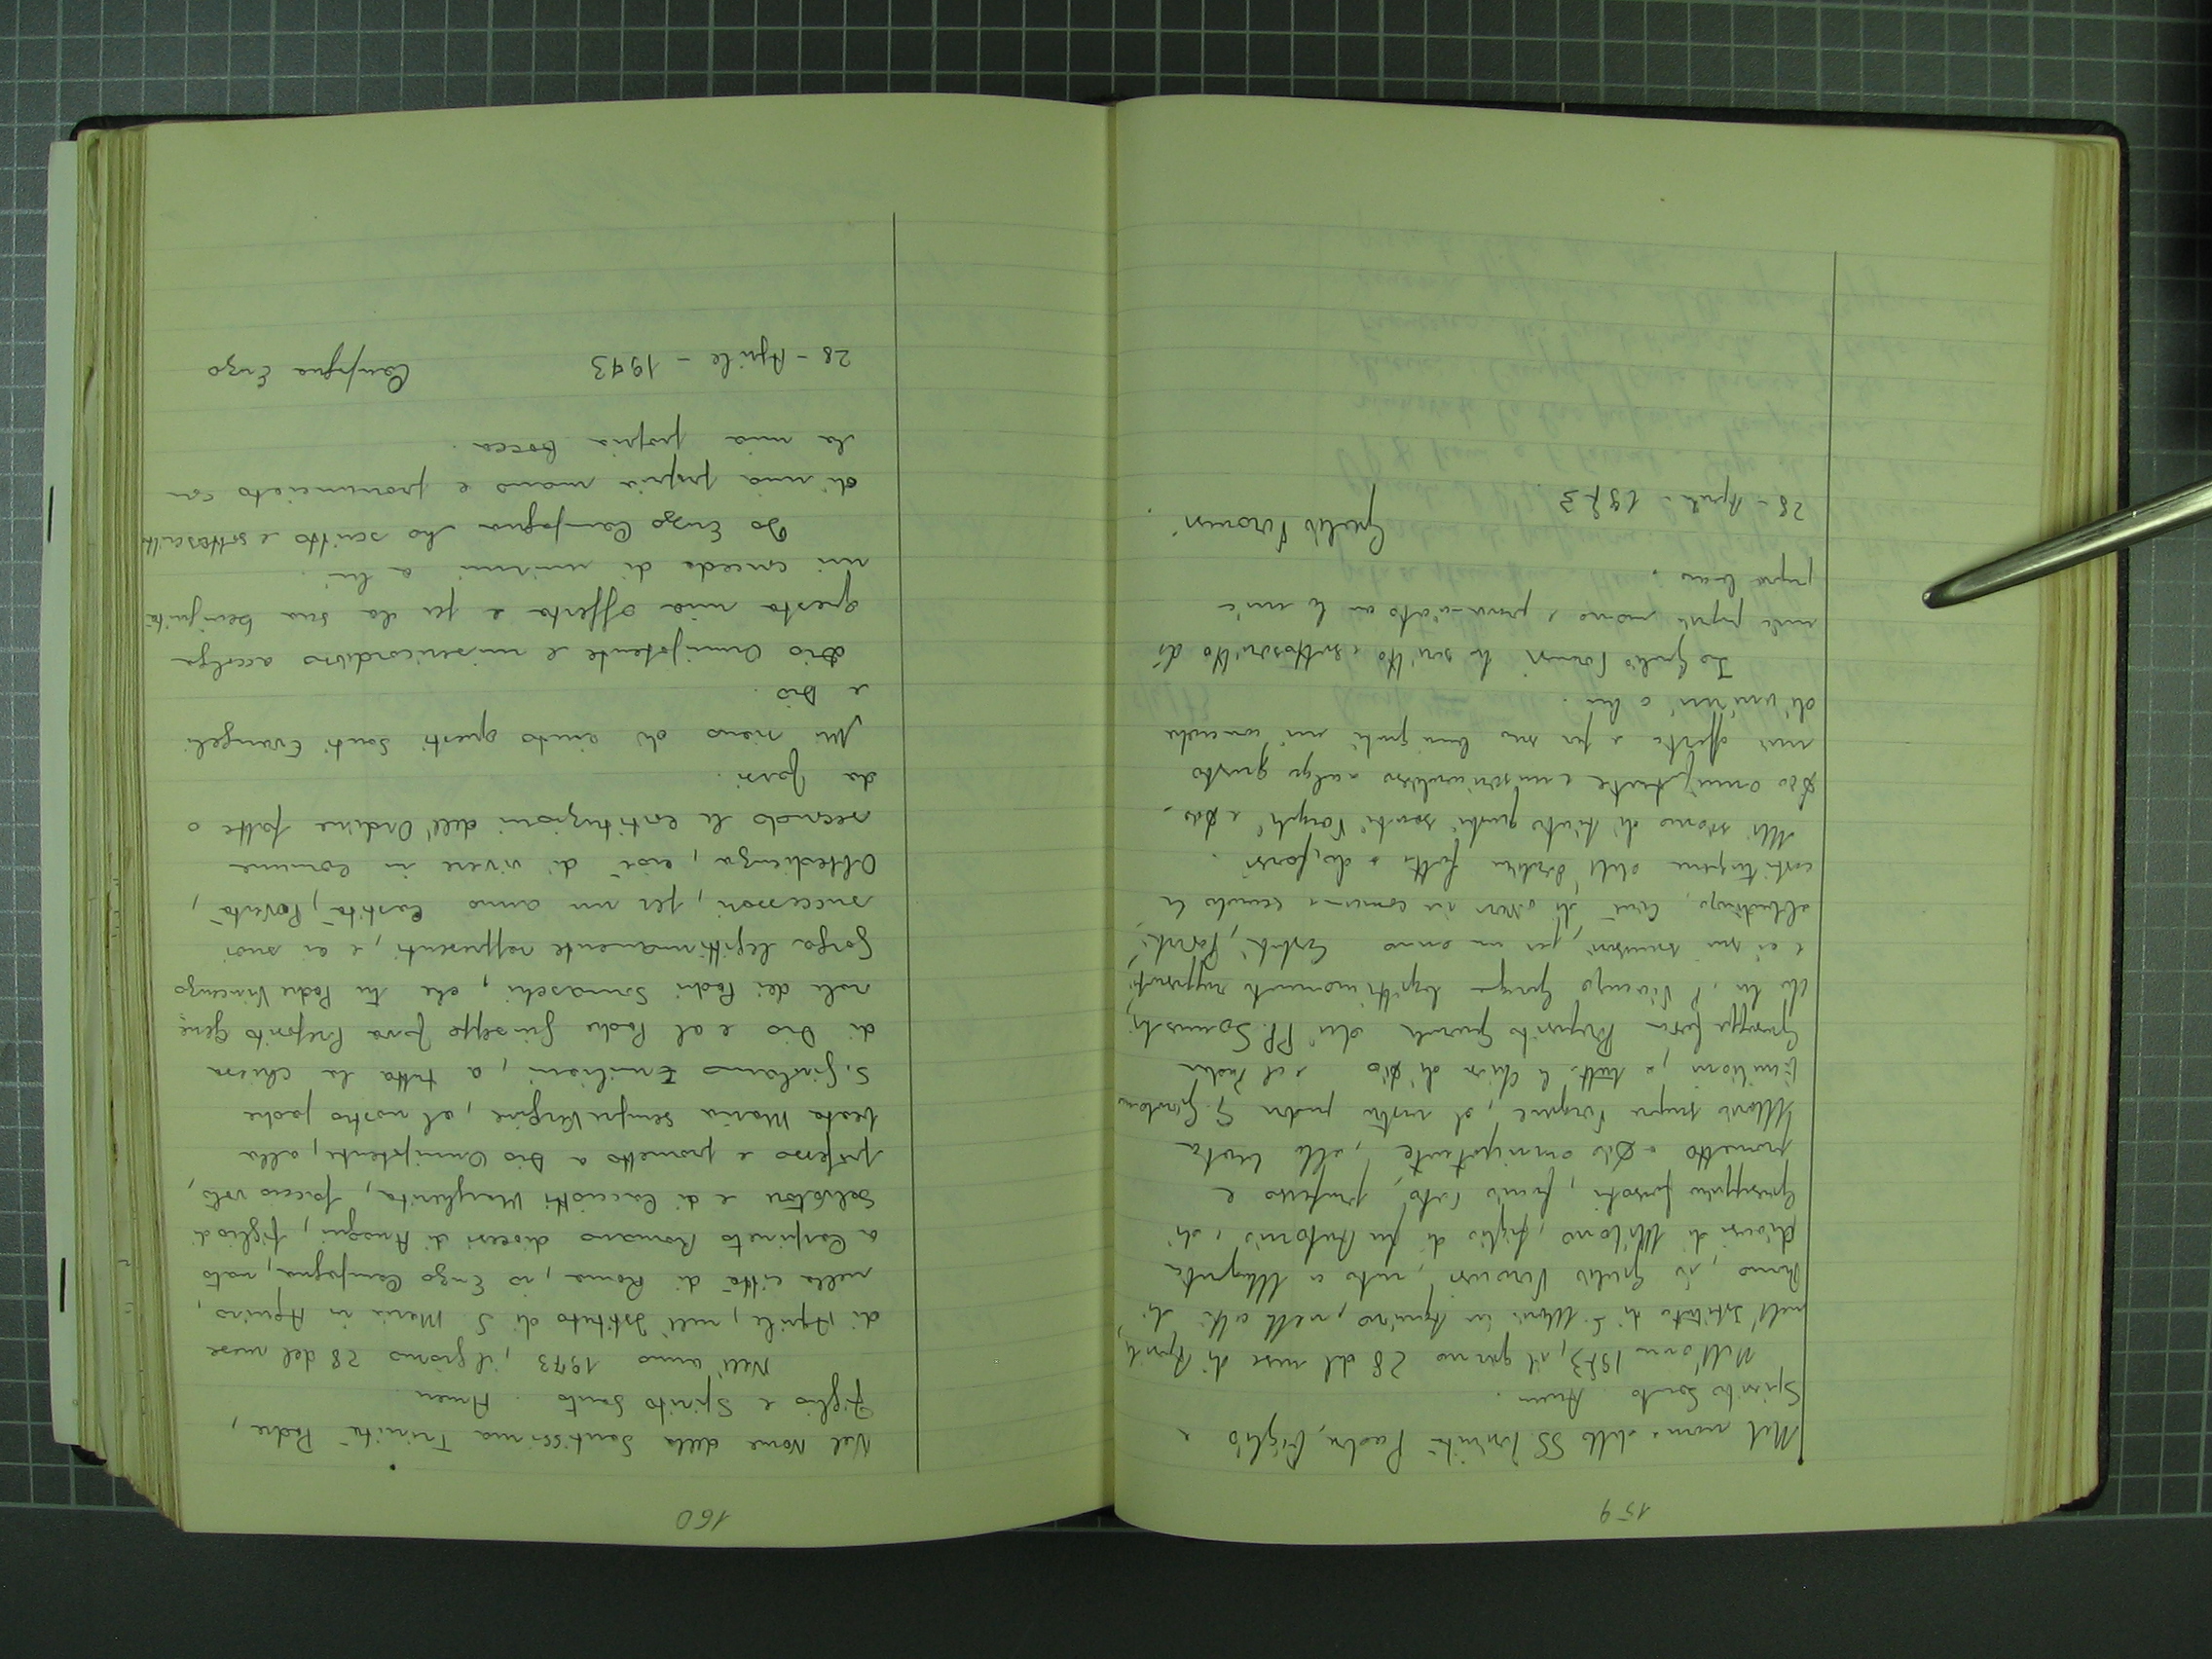 159
Nel nome della SS. Trinità Padre, Figlio e
Spirito Santo Amen.
Nell'anno 1973, il giorno 28 del mese di Aprile,
nell'Istituto di S. Maria in Aquiro, nella città di
Roma, io Giulio Veronesi, nato a
diocesi di Milano, figlio di fu Antonio e di
Giuseppina, faccio voto, professo e
prometto a Dio onnipotente, alla beata
Maria sempre Vergine, al nostro padre S. Girolamo
Emiliani, a tutta la Chiesa di Dio e al Padre
Giuseppe Fava Preposito Generale dei PP. Somaschi,
che tu, P. Vincenzo Gorga legittimamente rappresenti,
e ai suoi successori, per un anno Castità, Povertà,
obbedienza, cioè di vivere in comune secondo le
costituzioni dell'Ordine fatte o da farsi.
Mi siano di aiuto questi santi Vangeli e Dio.
Dio onnipotente e misericordioso accolga questa
mia offerta e per sua benignità mi conceda
di unirmi a lui.
Io Giulio Veronesi ho scritto e sottoscritto di
mia propria mano e pronunciato con la mia
propria bocca.
Giulio Veronesi
28 - Aprile - 1973.
160
Nel Nome della Santissima Trinità Padre,
Figlio e Spirito Santo. Amen.
Nell'anno 1973, il giorno 28 del mese
di Aprile, nell'Istituto di S. Maria in Aquiro,
nella città di Roma, io Enzo Campagna, nato
a Carpineto Romano diocesi di Anagni, figlio di
Salvatore e di Cacciotti Margherita, faccio voto,
professo e prometto a Dio Onnipotente, alla
beata Maria sempre Vergine, al nostro padre
S. Girolamo Emiliani, a tutta la chiesa
di Dio e al Padre Giuseppe Fava Preposito Gene
rale dei Padri Somaschi, che tu Padre Vincenzo
Gorga legittimamente rappresenti, e ai suoi
successori, per un anno Castità, Povertà,
Obbedienza, cioè di vivere in comune
secondo le costituzioni dell'Ordine fatte o
da farsi.
Mi siano di aiuto questi Santi Evangeli
e Dio.
Dio Onnipotente e misericordioso accolga
questa mia offerta e per la sua benignità
mi conceda di unirmi a lui.
Io Enzo Campagna ho scritto e sottoscritto
di mia propria mano e pronunciato con
la mia propria bocca.
28 - Aprile - 1973 Campagna Enzo